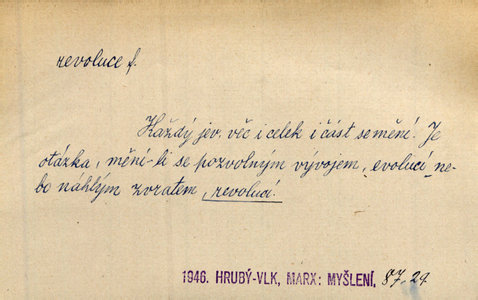 revoluce f.
Každý jev, věc i celek i část se mění. Je
otázka, mění-li se pozvolným vývojem, evolucí, ne-
bo náhlým zvratem, revolucí.
1946. HRUBÝ-VLK, MARX: MYŠLENÍ, 87,29